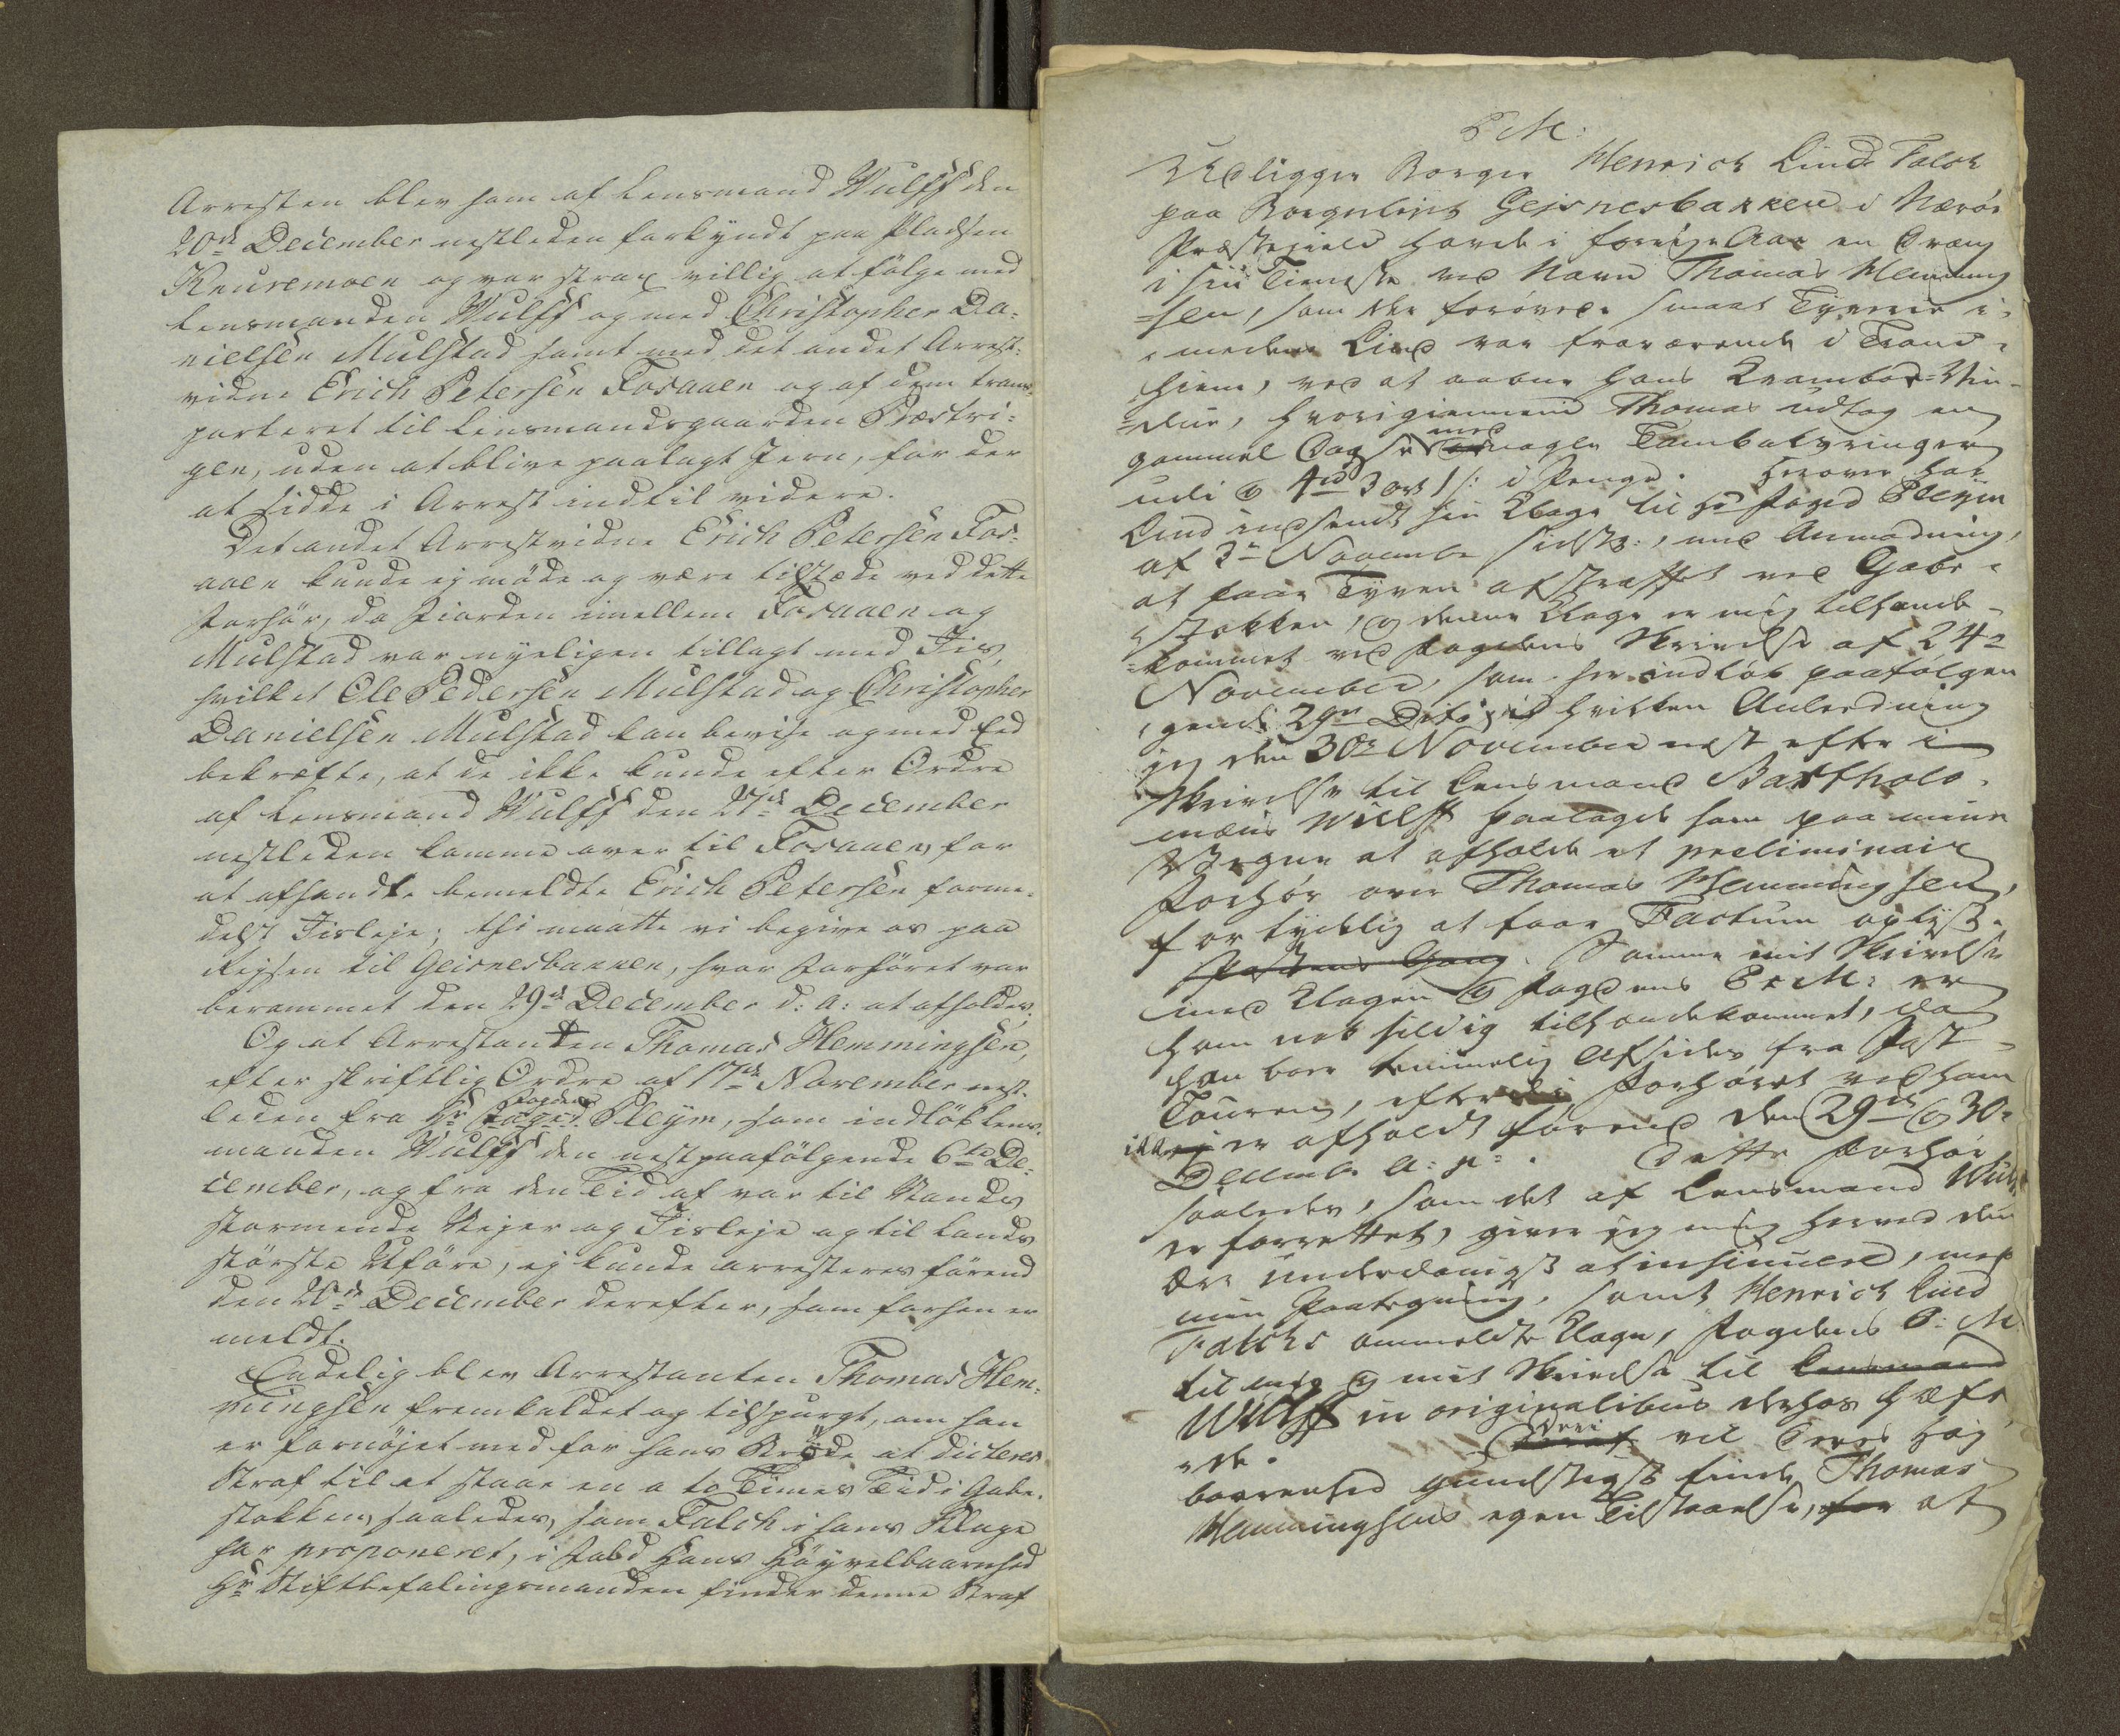 Arresten blev ham af Lensmand Wulff den
20de December nestleden forkyndt paa Pladsen
Knuremoen og var strax villig at følge med
Lensmanden Wulff og med Christopher Da-
nielsen Mulstad samt med det andet Arrest-
vidne Erich Petersen Fosaaen og af dem trans-
porteret til Lensmandsgaarden
gen, uden at blive paalagt Jern, for der
at sidde i Arrest indtil videre.
Det andet Arrestvidne Erich Petersen Fos-
aaen kunde ej møde og være tilstæde ved dette
Forhør, da Fiorden imellem Fosaaen og
Mulstad var nyeligen tillagt med Iis,
hvilket Ole Pedersen Mulstad og Christopher
Danielsen Mulstad kan bevise og med Eed
bekræfte, at de ikke kunde efter Ordre
af Lensmand Wulff den 27de December
nestleden komme over til Fosaaen, for
at afhandle bemeldte Erich Petersen forme-
delst Iisleje; thi maatte vi begive os paa
Rejsen til Geisnesbakken, hvor Forhøret var
berammet den 29de December d: A: at afholdes.
Og at Arrestanten Thomas Hemmingsen,
efter skriftlig Ordre af 17de November nest-
leden fra Hr Foged Pleym, som indløb Lens-
manden Wulff den nestpaafølgende 6te De-
cember, og fra den Tid af var til Vands
stormende Vejer og Iisleje og til Lands
største Uføre, ej kunde arresteres førend
den 20de December derefter, som forhen er
meldt.
Endelig blev Arrestanten Thomas Hem-
mingsen fremkaldet og tilspurgt, om han
er fornøjet med for hans Brøde at dicteres
Straf til at staae en a to Timers Tid i Gabe-
stokken, saaledes, som Falch i hans Klage
har proponeret, i Fald Hans Høyvelbaarenhed
Hr Stiftbefalingsmanden finder denne Straf
P M:
Udligger Borger Henrich Lind Falch
paa Borgerleiet Geisnesbakken i Nærøe
Præstegield havde i forrige Aar en Dreng
i sin Tieneste ved Navn Thomas Hemming
=sen, som der forøvede smaat Tyverie i-
=medens Lind var fraværende i Trond-
hiem, ved at aabne hans Krambod-Vin-
=due, hvorigiennem Thomas udtog en
gammel Daase med nogle Tombaksringer
udi og 4rd 3 ort 1 s: i Penge. Herover har
Lind indsendt sin Klage til Hr Foged Pleym
af 3de November sidstl:, med Anmodning,
at faae Tyven afstraffet ved Gabe-
stokken, og denne Klage er mig tilhænde-
=kommet ved Fogdens Skrivelse af 24de
November, som her indløb paafølgen
gende 29de Dito, i hvilken Anledning
jeg den 30de November nest efter i
Skrivelse til Lensmand Bartholo-
mæus Wulff paalagde ham paa mine
Vegne at afholde et preliminair
Forhør over Thomas Hemmingsen,
for tydelig at faae Factum oplyst.
Postens Gang. Samme mit Skrivelse
med Klagen og Fogdens P: M: er
ham nok sildig tilhændekommet, da
han boer temmelig afsides fra Post-
Touren, efterdi Forhøret ved ham
ikke er afholdt førend den 29de og 30te
December A: p: . Dette Forhør
saaledes, som det af Lensmand Wulff
er forrettet, giver jeg mig herved den
Ære underdanigst at insinuere, med
min Paategning, samt Henrich Lind
Falchs ommeldte Klage, Fogdens P: M:
til mig og mit Skrivelse til Lensmand
Wulff in originalibus derhos hæfte
=de. Deri vil Deres Høj
baarenhed gunstigst finde Thomas
Hemmingsens egen Tilstaaelse, for at